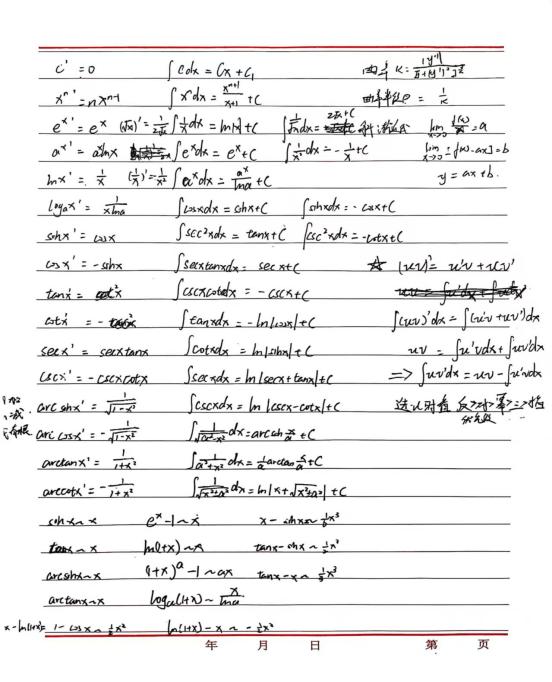 c' = 0  ∫cdx = Cx + C₁  曲率 K = |y''| / [1+(y')²]^(3/2)
xⁿ' = nxⁿ⁻¹  ∫xⁿdx = xⁿ⁺¹/(x+1) + C  曲率半径ρ = 1/K
eˣ' = eˣ  (√x)' = 1/(2√x)  ∫1/x dx = ln|x| + C  ∫1/√x dx = 2√x + C  斜渐近线  lim x→∞ f(x)/x = a
aˣ' = aˣlna  ∫eˣdx = eˣ + C  ∫1/x² dx = -1/x + C  lim x→∞ [f(x) - ax] = b
lnx' = 1/x  (1/x)' = -1/x²  ∫aˣdx = aˣ/lna + C  y = ax + b.
logₐx' = 1/(xlna)  ∫cosxdx = sinx + C  ∫sinxdx = -cosx + C
sinx' = cosx  ∫sec²xdx = tanx + C  ∫csc²xdx = -cotx + C
cosx' = -sinx  ∫secxtanxdx = secx + C  ☆ (uv)' = u'v + uv'
tanx' = sec²x  ∫cscxcotxdx = -cscx + C
cotx' = -csc²x  ∫tanxdx = -ln|cosx| + C  ∫(uv)'dx = ∫(u'v + uv')dx
secx' = secxtanx  ∫cotxdx = ln|sinx| + C  uv = ∫u'vdx + ∫uv'dx
cscx' = -cscxcotx  ∫secxdx = ln|secx + tanx| + C  => ∫uv'dx = uv - ∫u'vdx
arcsinx' = 1/√(1-x²)  ∫cscxdx = ln|cscx - cotx| + C  选u时看 反>对>幂>三>指
arccosx' = -1/√(1-x²)  ∫1/√(a²-x²) dx = arcsin x/a + C  优先级
arctanx' = 1/(1+x²)  ∫1/(a²+x²) dx = 1/a arctan x/a + C
arccotx' = -1/(1+x²)  ∫1/√(x²+a²) dx = ln|x + √(x²+a²)| + C
sinx ~ x  eˣ - 1 ~ x  x - sinx ~ 1/6 x³
tanx ~ x  ln(1+x) ~ x  tanx - sinx ~ 1/2 x³
arcsinx ~ x  (1+x)ᵃ - 1 ~ ax  tanx - x ~ 1/3 x³
arctanx ~ x  logₐ(1+x) ~ x/lna
x - ln(1+x) =  1 - cosx ~ 1/2 x²  ln(1+x) - x ~ -1/2 x²
年 月 日 第 页